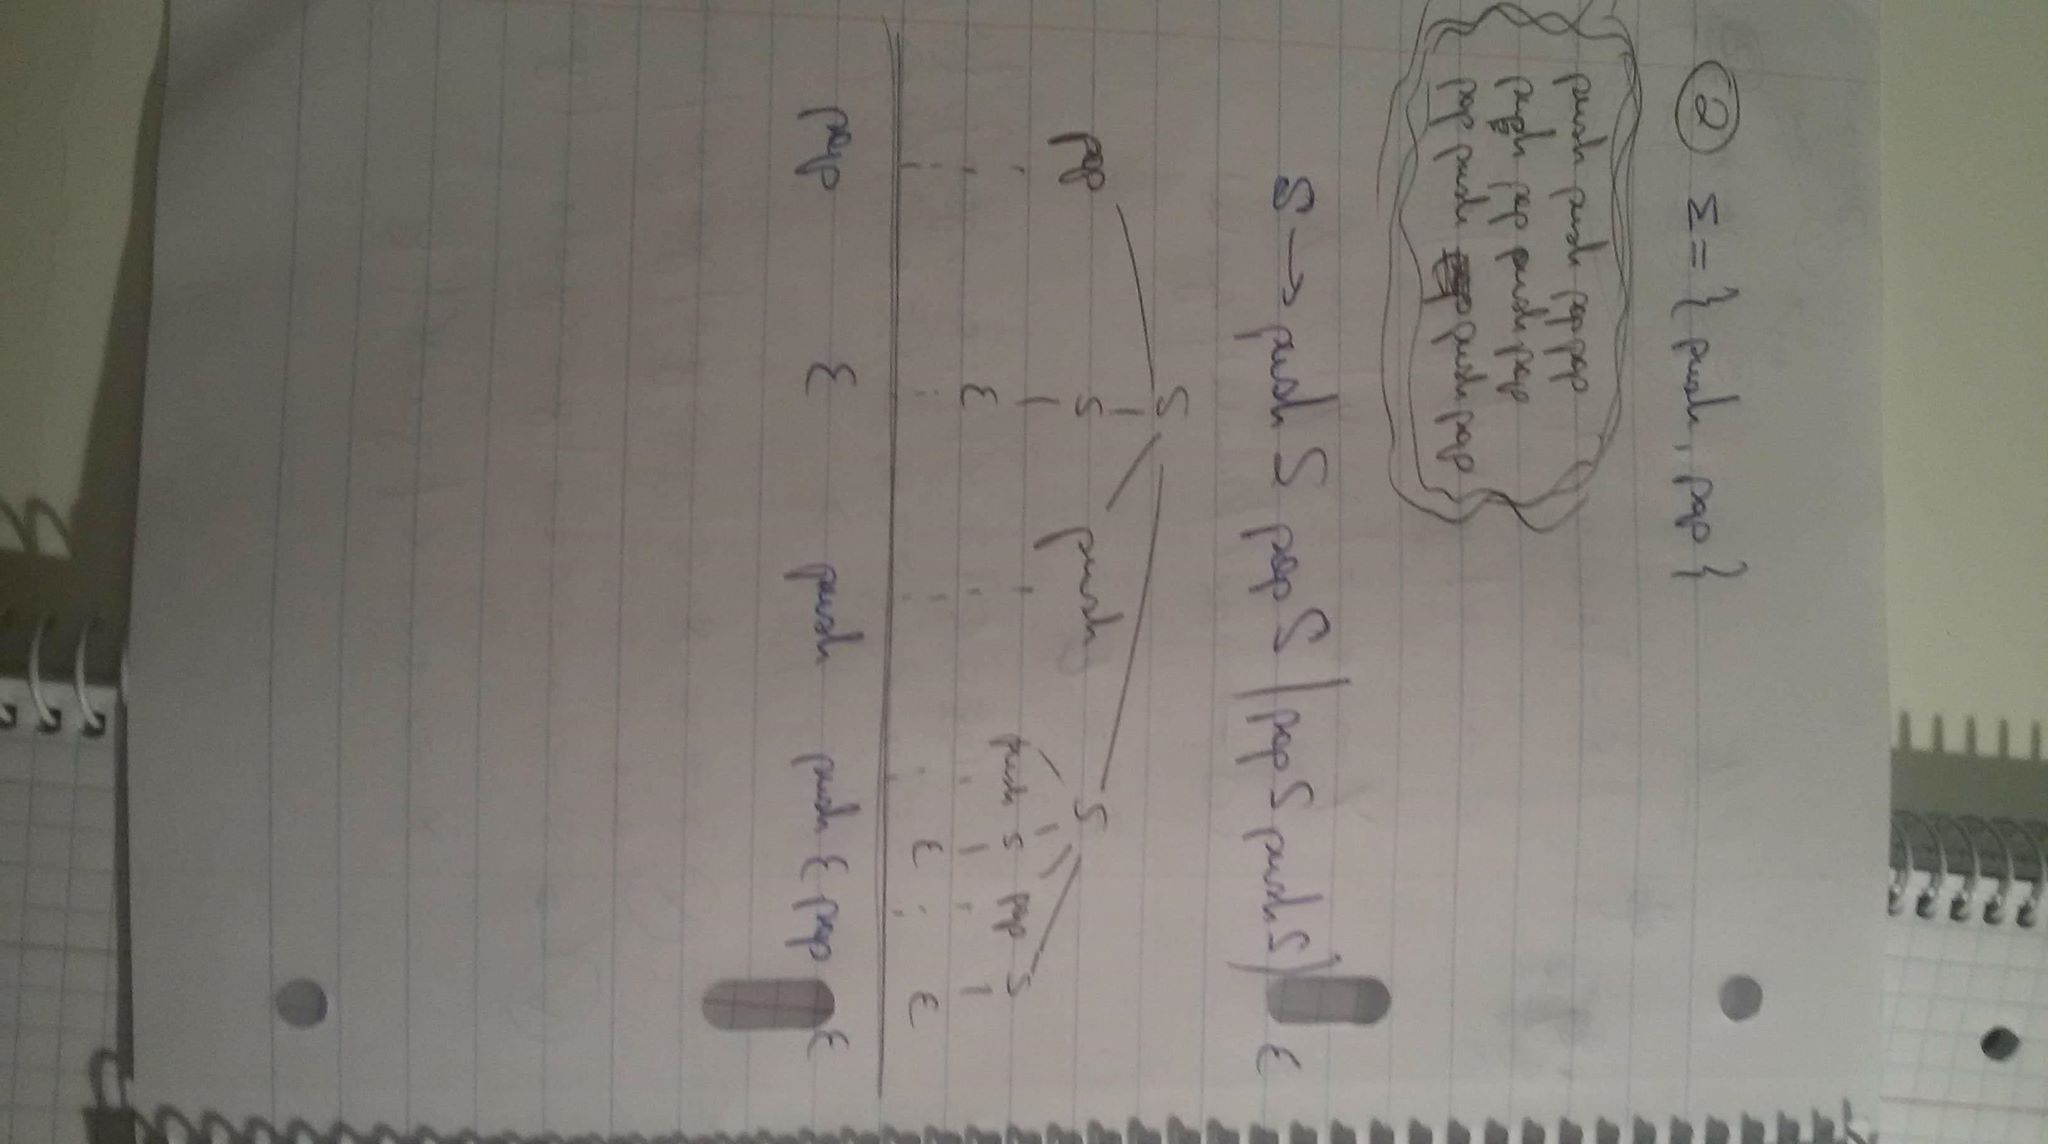 ② Σ = { push, pop }
push push pop pop
push pop push pop
pop push push pop
S → push S pop S | pop S push S | ε
S
pop S push S
ε push S pop S
ε ε
pop ε push push ε pop ε